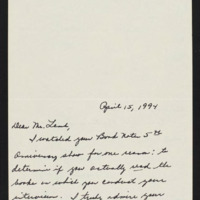 April 15, 1994
Dear Mr. Lamb,
I watched your Book Notes 5th
Anniversary show for one reason: to
determine if you actually read the
books on which you conduct your
interviews. I truly admire your